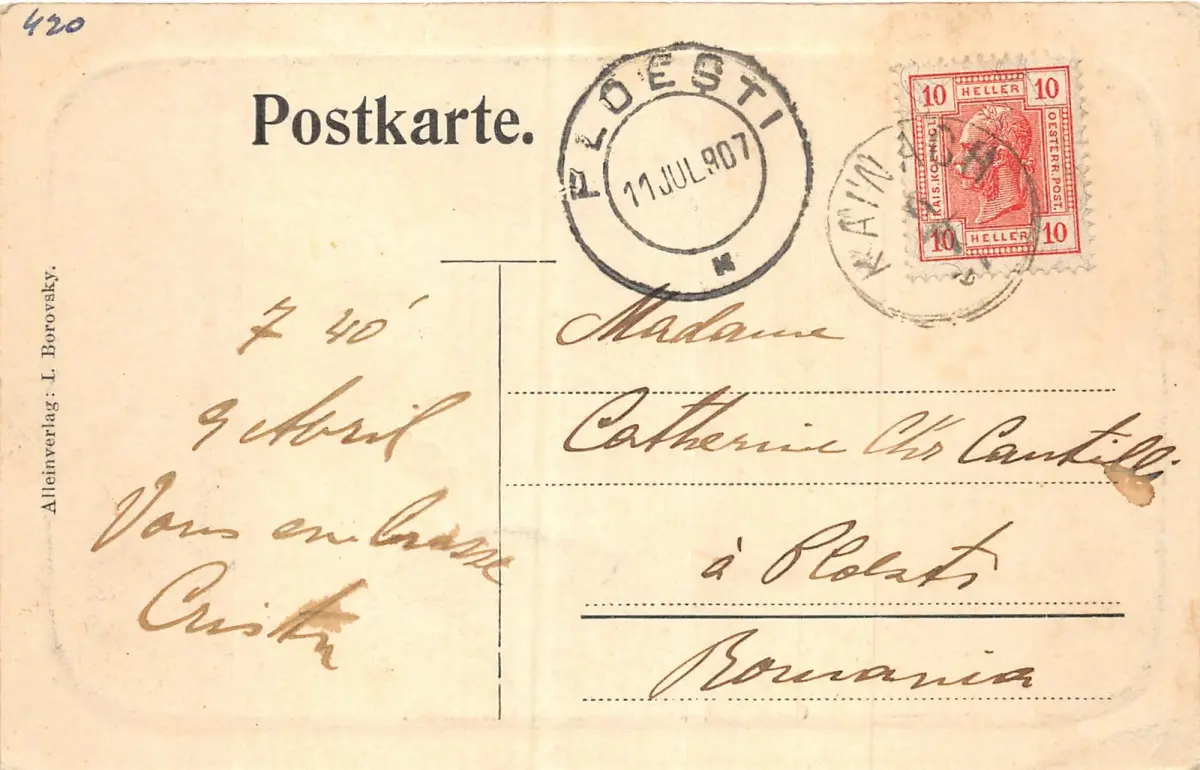 420
Postkarte.
PLOESTI
11 JUL. 907
10 HELLER 10
KAIS. KÖNIGL.
OESTERR. POST.
10 HELLER 10
KAINACH
Alleinverlag: I. Borovsky.
7 40'
9 Avril
Vous embrasse
Madame
Catherine Chr Cantilli
à Ploesti
Romania